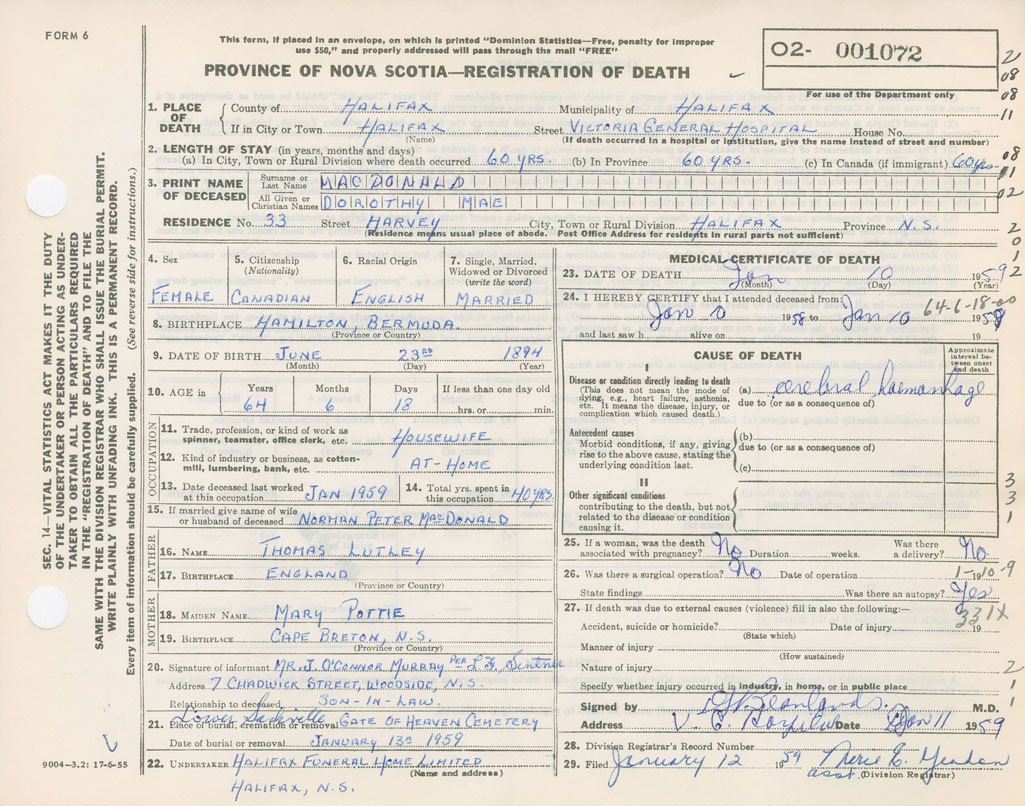 FORM 6
This form, if placed in an envelope, on which is printed "Dominion Statistics—Free, penalty for improper
use $50," and properly addressed will pass through the mail "FREE"
PROVINCE OF NOVA SCOTIA—REGISTRATION OF DEATH
02- 001072
For use of the Department only
2
08
08
11
08
11
02
2
0
1
2
SEC. 14—VITAL STATISTICS ACT MAKES IT THE DUTY
OF THE UNDERTAKER OR PERSON ACTING AS UNDER-
TAKER TO OBTAIN ALL THE PARTICULARS REQUIRED
IN THE "REGISTRATION OF DEATH" AND TO FILE THE
SAME WITH THE DIVISION REGISTRAR WHO SHALL ISSUE THE BURIAL PERMIT.
WRITE PLAINLY WITH UNFADING INK. THIS IS A PERMANENT RECORD.
Every item of information should be carefully supplied. (See reverse side for instructions.)
1. PLACE OF DEATH
County of HALIFAX Municipality of HALIFAX
If in City or Town HALIFAX Street VICTORIA GENERAL HOSPITAL House No.
(Name) (If death occurred in a hospital or institution, give the name instead of street and number)
2. LENGTH OF STAY (in years, months and days)
(a) In City, Town or Rural Division where death occurred 60 YRS. (b) In Province 60 YRS. (c) In Canada (if immigrant) 60 yrs.
3. PRINT NAME OF DECEASED
Surname or Last Name MACDONALD
All Given or Christian Names DOROTHY MAE
RESIDENCE No. 33 Street HARVEY City, Town or Rural Division HALIFAX Province N.S.
(Residence means usual place of abode. Post Office Address for residents in rural parts not sufficient)
4. Sex 5. Citizenship (Nationality) 6. Racial Origin 7. Single, Married, Widowed or Divorced (write the word)
FEMALE CANADIAN ENGLISH MARRIED
8. BIRTHPLACE HAMILTON, BERMUDA.
(Province or Country)
9. DATE OF BIRTH JUNE 23RD 1894
(Month) (Day) (Year)
10. AGE in Years Months Days If less than one day old
64 6 18 hrs. or min.
OCCUPATION
11. Trade, profession, or kind of work as spinner, teamster, office clerk, etc. HOUSEWIFE
12. Kind of industry or business, as cotton-mill, lumbering, bank, etc. AT-HOME
13. Date deceased last worked at this occupation JAN 1959 14. Total yrs. spent in this occupation 40 YRS.
15. If married give name of wife or husband of deceased NORMAN PETER MACDONALD
FATHER
16. NAME THOMAS LUTLEY
17. BIRTHPLACE ENGLAND
(Province or Country)
MOTHER
18. MAIDEN NAME MARY POTTIE
19. BIRTHPLACE CAPE BRETON, N.S.
(Province or Country)
20. Signature of informant MR. J. O'CONNOR MURRAY PER
Address 7 CHADWICK STREET, WOODSIDE, N.S.
Relationship to deceased SON-IN-LAW.
21. Place of burial, cremation or removal Lower Sackville GATE OF HEAVEN CEMETERY
Date of burial or removal JANUARY 13th 1959
22. UNDERTAKER HALIFAX FUNERAL HOME LIMITED
(Name and address)
HALIFAX, N.S.
9004-3.2: 17-6-55
MEDICAL CERTIFICATE OF DEATH
23. DATE OF DEATH Jan 10 1959
(Month) (Day) (Year)
24. I HEREBY CERTIFY that I attended deceased from: 64-6-18-00
Jan 10 1958 to Jan 10 1959
and last saw h alive on 19
CAUSE OF DEATH
Approximate interval between onset and death
I
Disease or condition directly leading to death
(This does not mean the mode of
dying, e.g., heart failure, asthenia,
etc. It means the disease, injury, or
complication which caused death.)
(a) cerebral haemorrhage
due to (or as a consequence of)
Antecedent causes
Morbid conditions, if any, giving
rise to the above cause, stating the
underlying condition last.
(b)
due to (or as a consequence of)
(c)
II
Other significant conditions
contributing to the death, but not
related to the disease or condition
causing it.
3
3
1
25. If a woman, was the death associated with pregnancy? No Duration weeks. Was there a delivery? No
26. Was there a surgical operation? No Date of operation 1-10-9 19
State findings Was there an autopsy? Yes
27. If death was due to external causes (violence) fill in also the following:— 331X
Accident, suicide or homicide? Date of injury 19
(State which)
Manner of injury
(How sustained)
Nature of injury
Specify whether injury occurred in industry, in home, or in public place
2
1
1
Signed by M.D.
Address V. G. Hospital Date Jan 11 1959
28. Division Registrar's Record Number
29. Filed January 12 1959
asst. (Division Registrar)